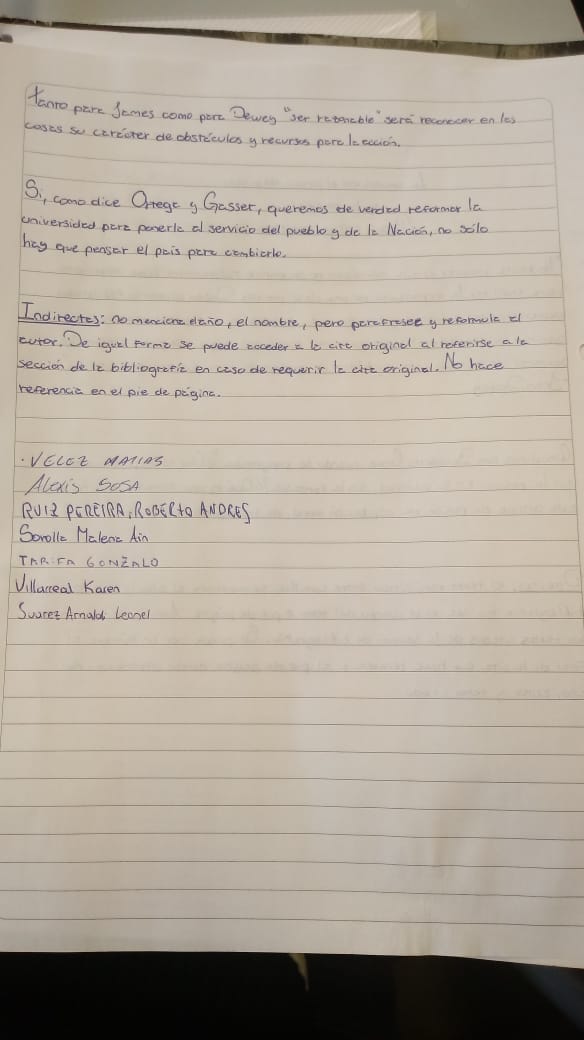 tanto para James como para Dewey "ser razonable" será reconocer en las
cosas su carácter de obstáculos y recursos para la acción.
Si, como dice Ortega y Gasser, queremos de verdad reformar la
universidad para ponerla al servicio del pueblo y de la Nación, no sólo
hay que pensar el país para cambiarlo.
Indirectas: no menciona el año, el nombre, pero parafrasea y reformula al
autor. De igual forma se puede acceder a la cita original al referirse a la
sección de la bibliografía en caso de requerir la cita original. No hace
referencia en el pie de página.
· VELEZ MATIAS
Alexis SOSA
RUIZ PEREIRA, ROBERTO ANDRES
Sorolla Malena Ain
TARIFA GONZALO
Villarreal Karen
Suarez Arnaldo Leonel